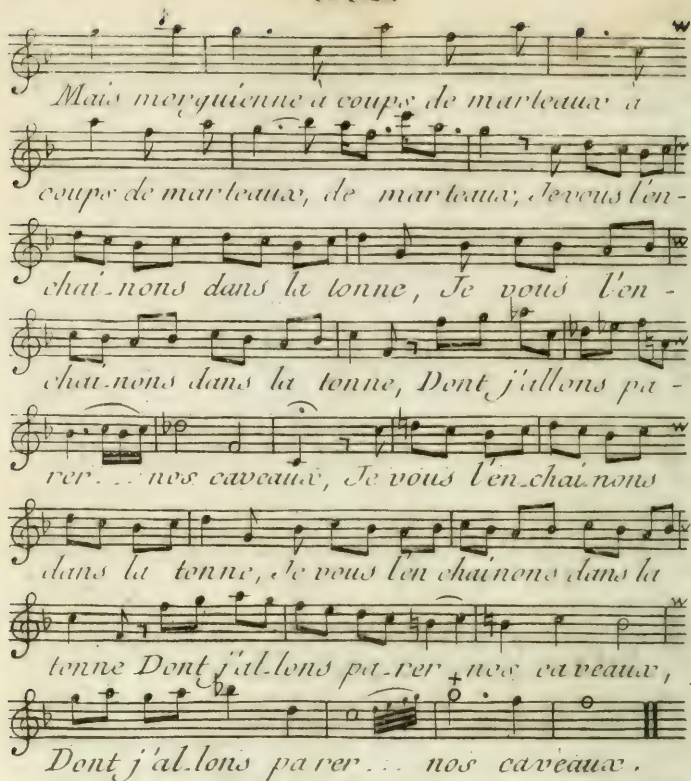 Mais morguienne à coups de marteaux à
coups de marteaux, de marteaux, Je vous l'en-
chai-nons dans la tonne, Je vous l'en-
chai-nons dans la tonne, Dont j'allons pa-
rer... nos caveaux, Je vous l'en-chai-nons
dans la tonne, Je vous l'en chainons dans la
tonne Dont j'al-lons pa-rer nos caveaux,
Dont j'al-lons parer... nos caveaux.